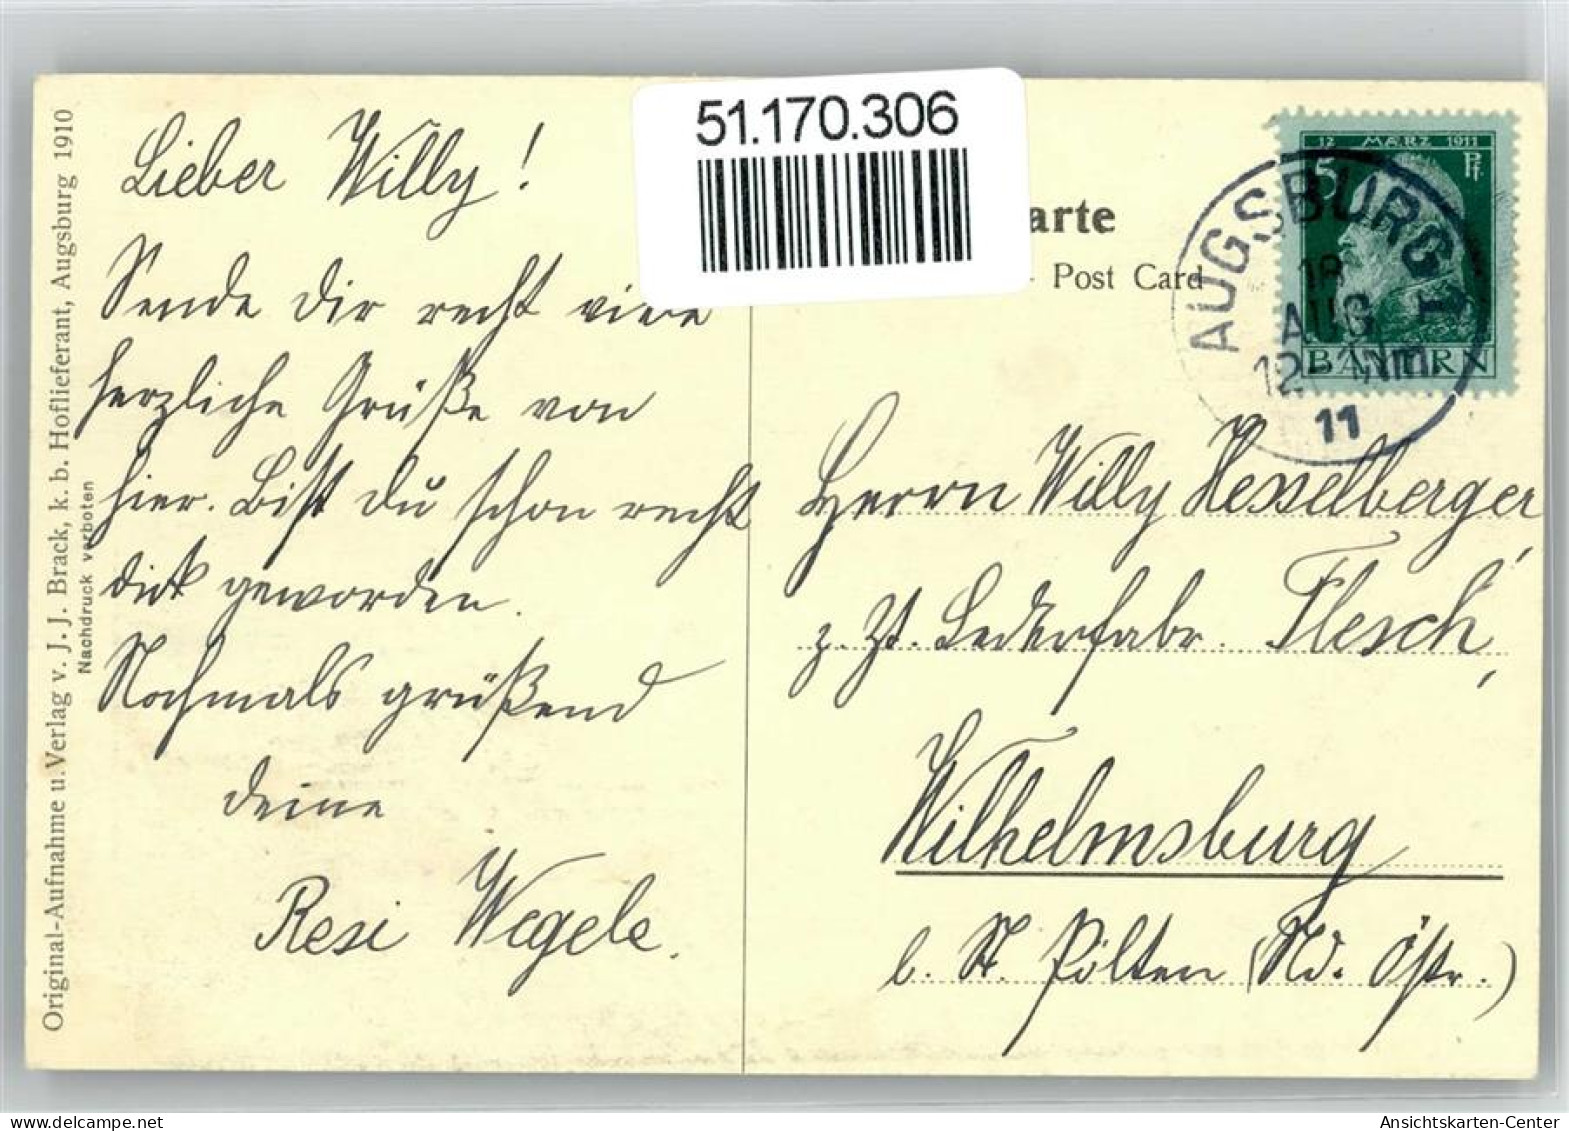 Original-Aufnahme u. Verlag v. J. J. Brack, k. b. Hoflieferant, Augsburg 1910
Nachdruck verboten
Lieber Willy!
Sende Dir recht viele
herzliche Grüße von
hier. Bist du schon recht
dick geworden.
Nochmals grüßend
deine
Resi Wegele.
51.170.306
arte
Post Card
12 MÆRZ 1911
5 Pf
BAYERN
AUGSBURG 1
18
AUG
12-1Nm
11
Herrn Willy Hesselberger,
z. Zt. Lederfabr. Flesch,
Wilhelmsburg
b. St. Pölten (Nd. Östr.)
Ansichtskarten-Center